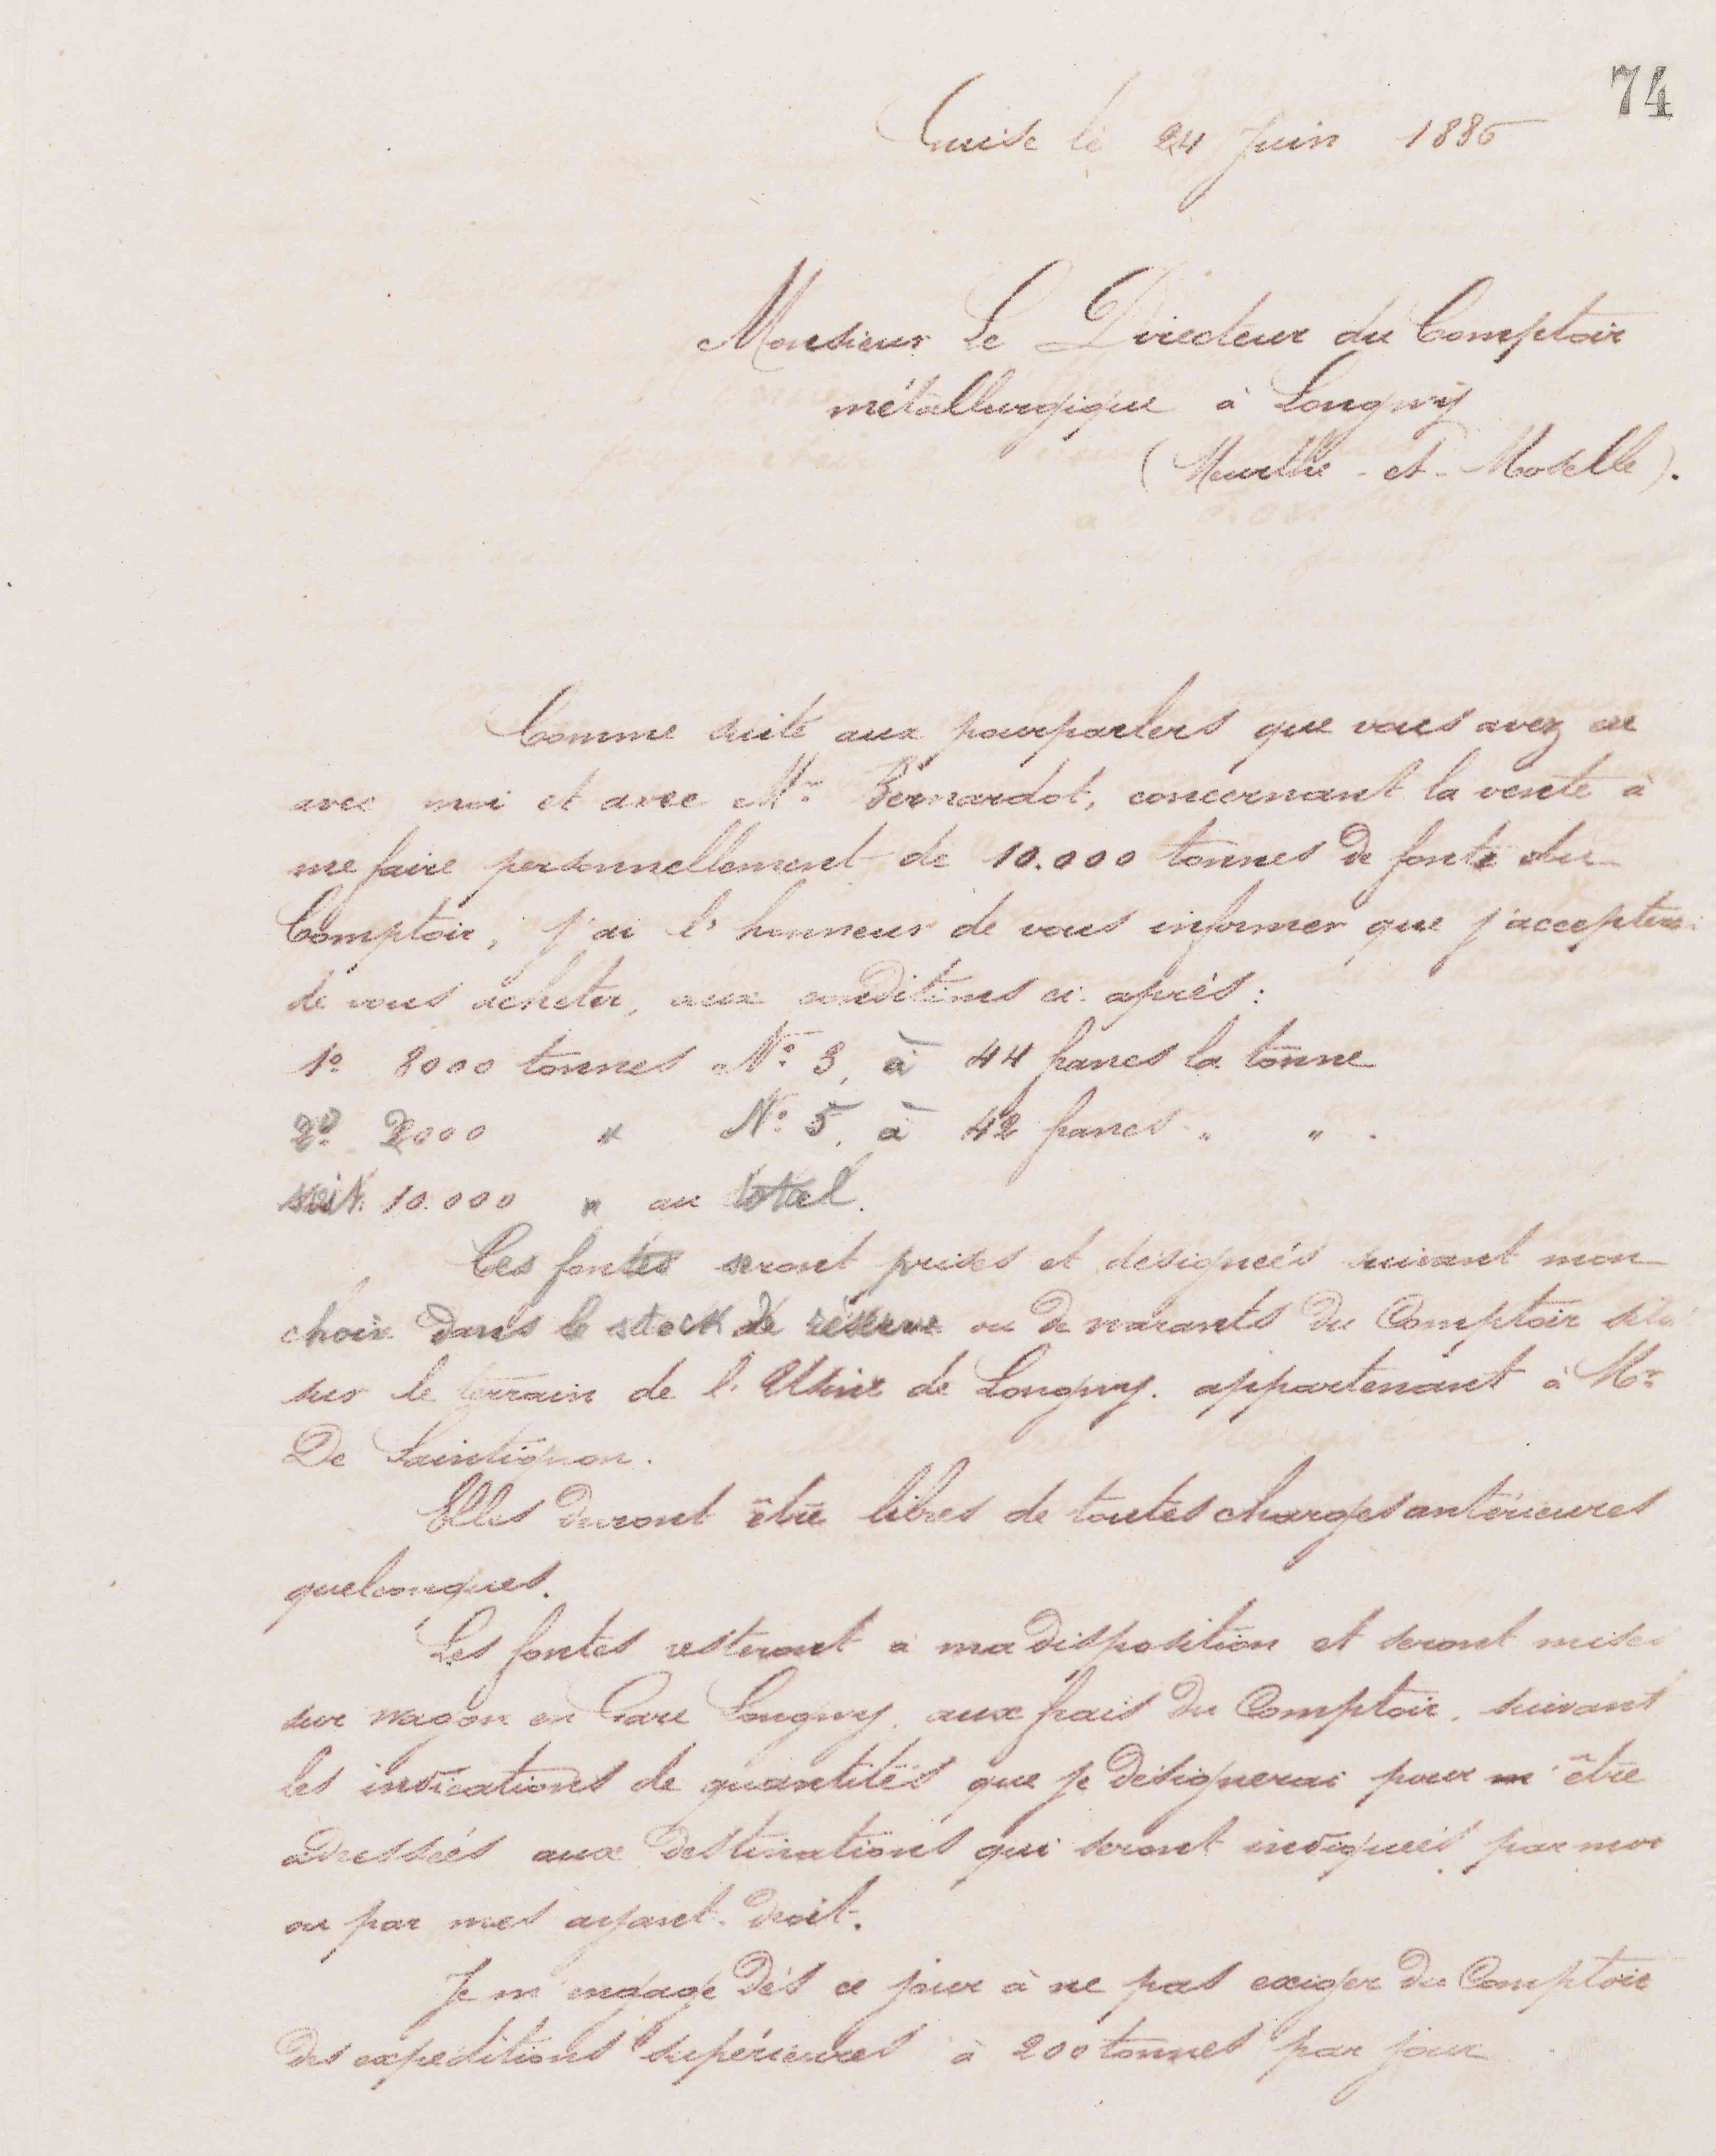 74
Guise le 24 Juin 1886
Monsieur Le Directeur du Comptoir
métallurgique à Longwy
(Meurthe-et-Moselle).
Comme suite aux pourparlers que vous avez eu
avec moi et avec Mr Bernardot, concernant la vente à
me faire personnellement de 10.000 tonnes de fonte du
Comptoir, j'ai l'honneur de vous informer que j'accepterai
de vous acheter, aux conditions ci-après:
1º 8000 tonnes Nº 3, à 44 francs la tonne
2º 2000 " Nº 5, à 42 francs " " .
soit 10.000 " au total.
Ces fontes seront prises et désignées suivant mon
choix dans le stock de réserve ou de warants du Comptoir
sur le terrain de l'Usine de Longwy. appartenant à Mr
De Saintignon.
Elles devront être libres de toutes charges antérieures
quelconques.
Les fontes resteront à ma disposition et seront mises
sur wagon en Gare Longwy, aux frais du Comptoir, suivant
les indications de quantités que je désignerai pour m'être
adressées aux destinations qui seront indiquées par moi
ou par mes ayant-droit.
Je m'engage dès ce jour à ne pas exiger du Comptoir
des expéditions supérieures à 200 tonnes par jour